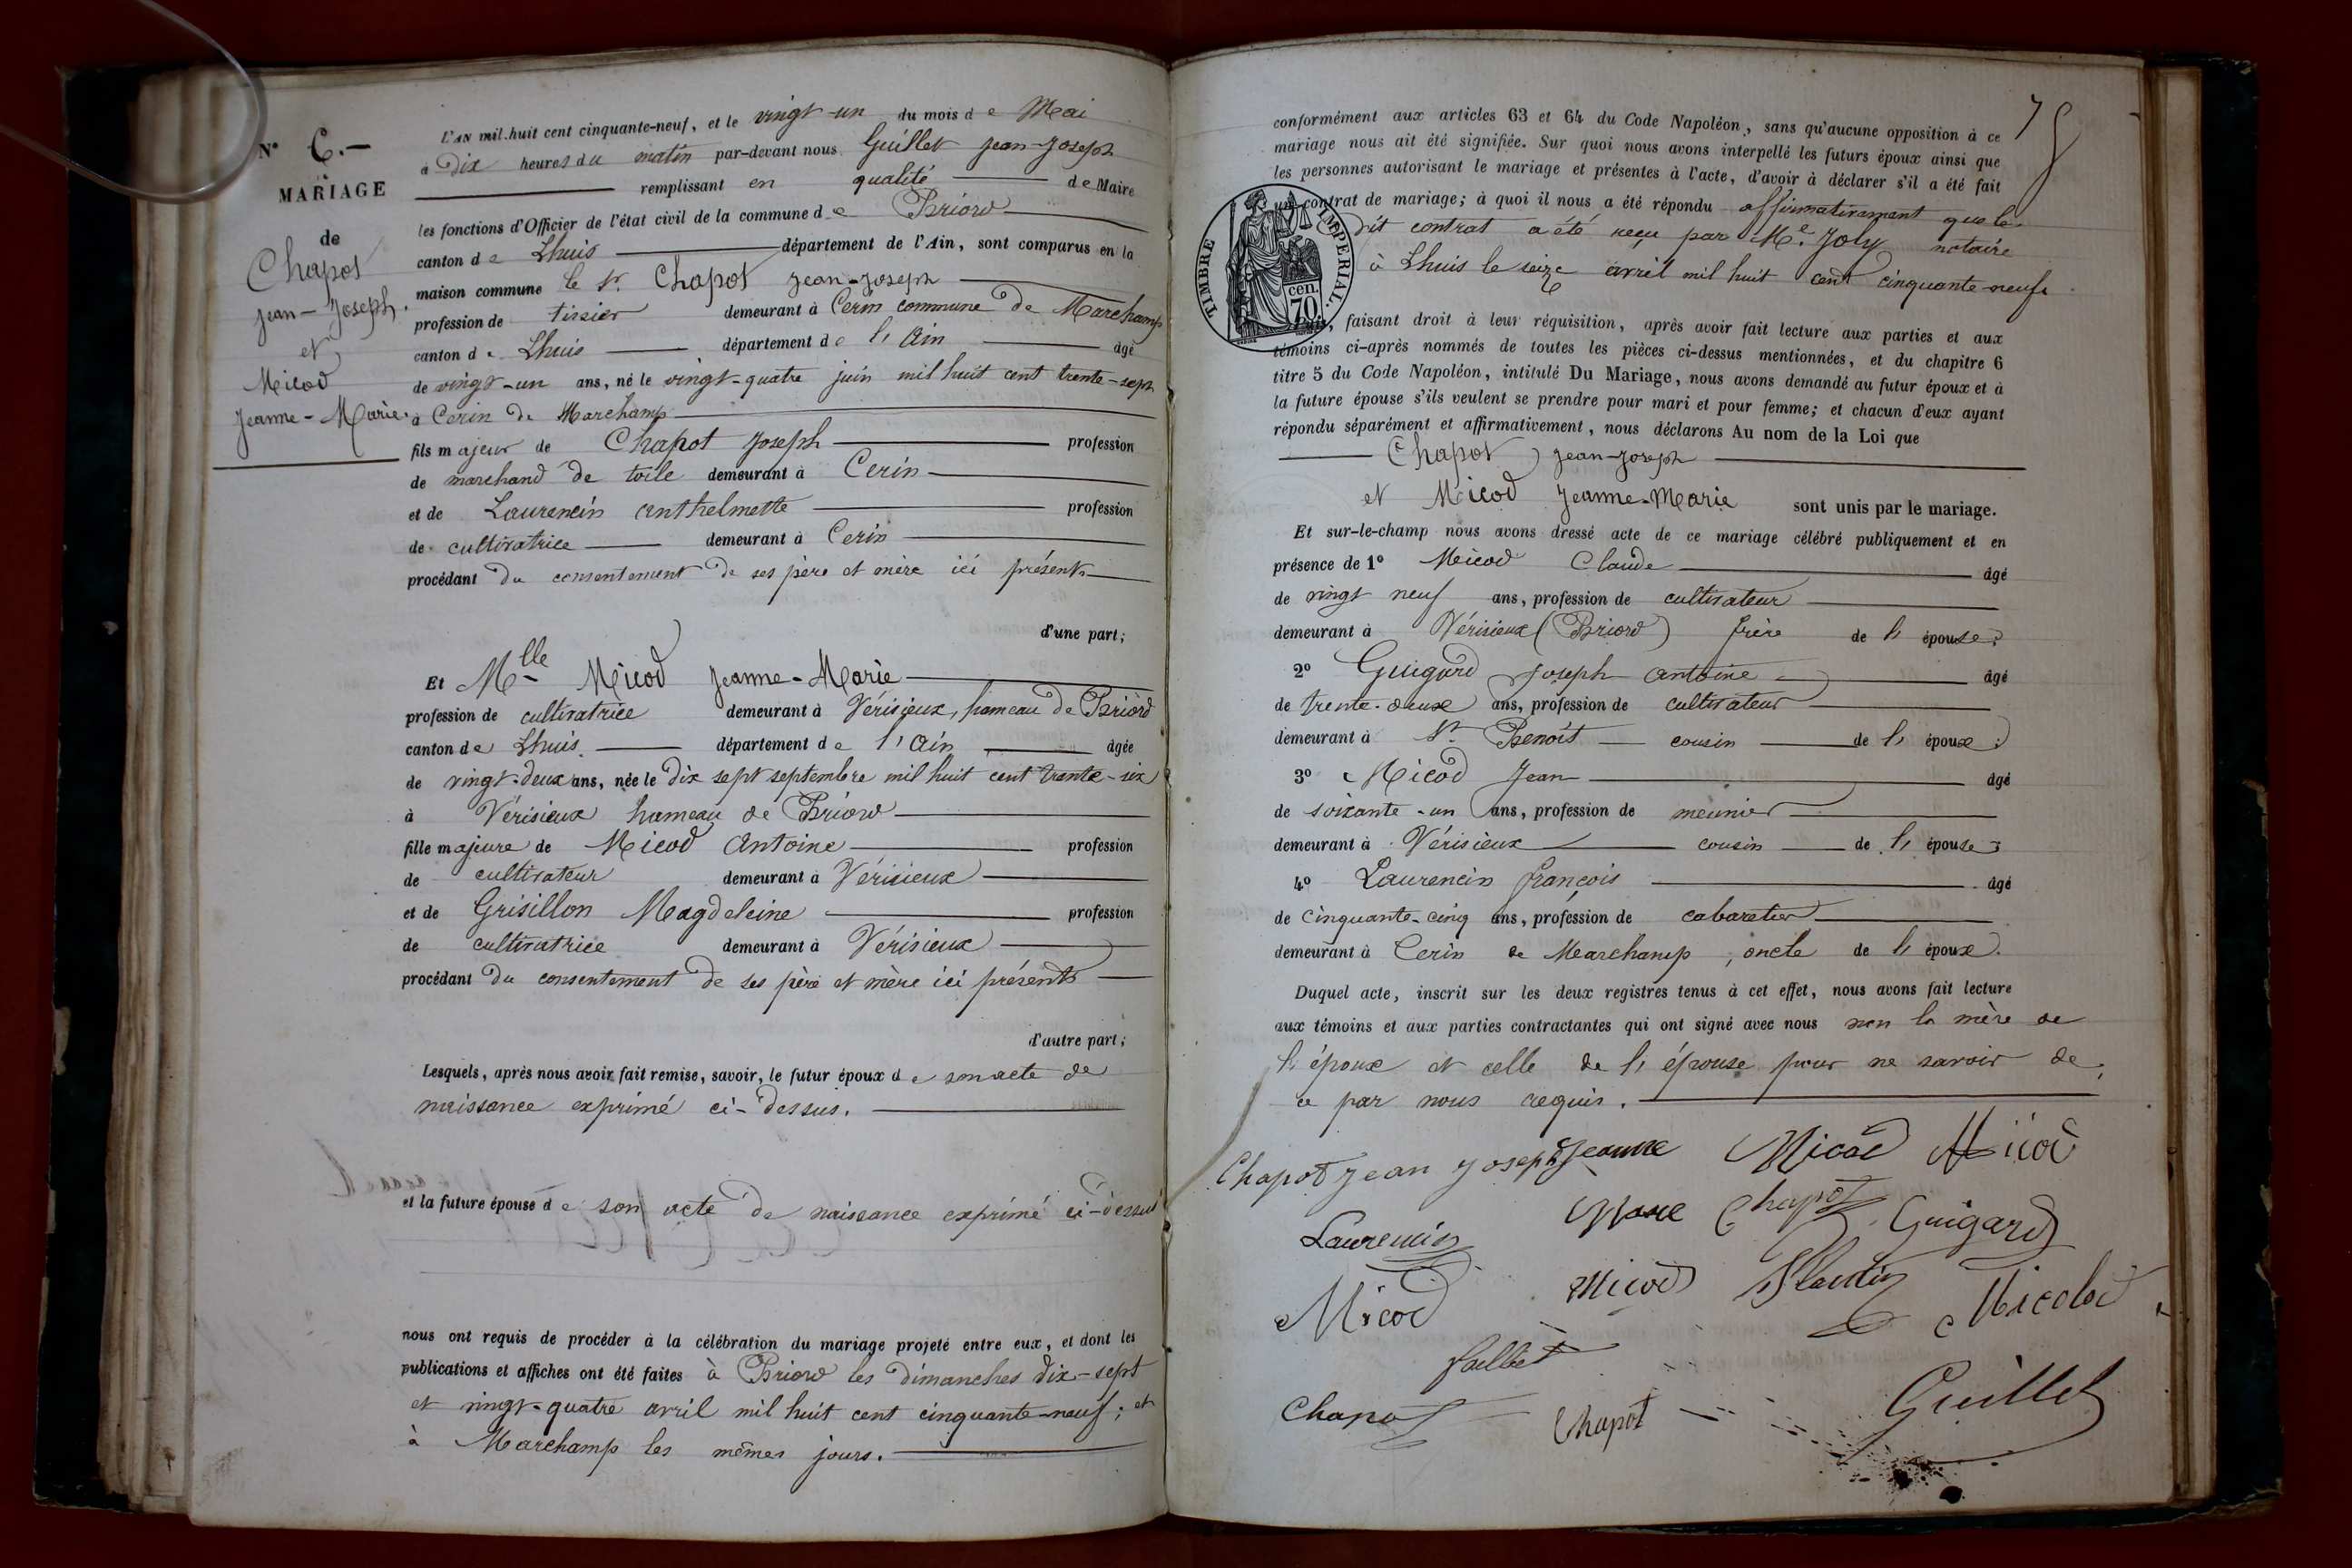 N° 6.-
MARIAGE
de
Chapot
Jean-Joseph.
et
Micod
Jeanne-Marie.
L'AN mil-huit cent cinquante-neuf, et le vingt-un du mois de Mai
à Dix heures du matin par-devant nous Guillet Jean-Joseph
remplissant en qualité de Maire
les fonctions d'Officier de l'état civil de la commune de Briord
canton de Lhuis département de l'Ain, sont comparus en la
maison commune le Sr. Chapot Jean-Joseph
profession de tissier demeurant à Cerin commune de Marchamp
canton de Lhuis département de l'Ain âgé
de vingt-un ans, né le vingt-quatre juin mil huit cent trente-sept
à Cerin de Marchamp
fils majeur de Chapot Joseph profession
de marchand de toile demeurant à Cerin
et de Laurencin Anthelmette profession
de cultivatrice demeurant à Cerin
procédant du consentement de ses père et mère ici présents
d'une part;
Et Mlle Micod Jeanne-Marie
profession de cultivatrice demeurant à Vérisieux, hameau de Briord
canton de Lhuis département de l'Ain âgée
de vingt-deux ans, née le dix sept septembre mil huit cent trente-six
à Vérisieux hameau de Briord
fille majeure de Micod Antoine profession
de cultivateur demeurant à Vérisieux
et de Grisillon Magdeleine profession
de cultivatrice demeurant à Vérisieux
procédant du consentement de ses père et mère ici présents
d'autre part;
Lesquels, après nous avoir fait remise, savoir, le futur époux de son acte de
naissance exprimé ci-dessus.
et la future épouse de son acte de naissance exprimé ci-dessus
nous ont requis de procéder à la célébration du mariage projeté entre eux, et dont les
publications et affiches ont été faites à Briord les dimanches dix-sept
et vingt-quatre avril mil huit cent cinquante-neuf; et
à Marchamp les mêmes jours.
conformément aux articles 63 et 64 du Code Napoléon, sans qu'aucune opposition à ce
mariage nous ait été signifiée. Sur quoi nous avons interpellé les futurs époux ainsi que
les personnes autorisant le mariage et présentes à l'acte, d'avoir à déclarer s'il a été fait
un contrat de mariage; à quoi il nous a été répondu affirmativement que le
dit contrat a été reçu par Me. Joly notaire
à Lhuis le seize avril mil huit cent cinquante-neuf.
TIMBRE IMPÉRIAL.
70 cen.
faisant droit à leur réquisition, après avoir fait lecture aux parties et aux
témoins ci-après nommés de toutes les pièces ci-dessus mentionnées, et du chapitre 6
titre 5 du Code Napoléon, intitulé Du Mariage, nous avons demandé au futur époux et à
la future épouse s'ils veulent se prendre pour mari et pour femme; et chacun d'eux ayant
répondu séparément et affirmativement, nous déclarons Au nom de la Loi que
Chapot Jean-Joseph
et Micod Jeanne-Marie sont unis par le mariage.
Et sur-le-champ nous avons dressé acte de ce mariage célébré publiquement et en
présence de 1° Micod Claude âgé
de vingt neuf ans, profession de cultivateur
demeurant à Vérisieux (Briord) frère de l'épouse;
2° Guigard Joseph Antoine âgé
de trente-deux ans, profession de cultivateur
demeurant à St. Benoît cousin de l'époux;
3° Micod Jean âgé
de soixante-un ans, profession de meunier
demeurant à Vérisieux cousin de l'épouse;
4° Laurencin François âgé
de cinquante-cinq ans, profession de cabaretier
demeurant à Cerin de Marchamp, oncle de l'époux.
Duquel acte, inscrit sur les deux registres tenus à cet effet, nous avons fait lecture
aux témoins et aux parties contractantes qui ont signé avec nous non la mère de
l'époux et celle de l'épouse pour ne savoir de
ce par nous requis.
Chapot Jean Joseph Jeanne Micod Micod
Laurencin Chapot Guigard
Micod Micod Micolod
Chapot Chapot Guillet